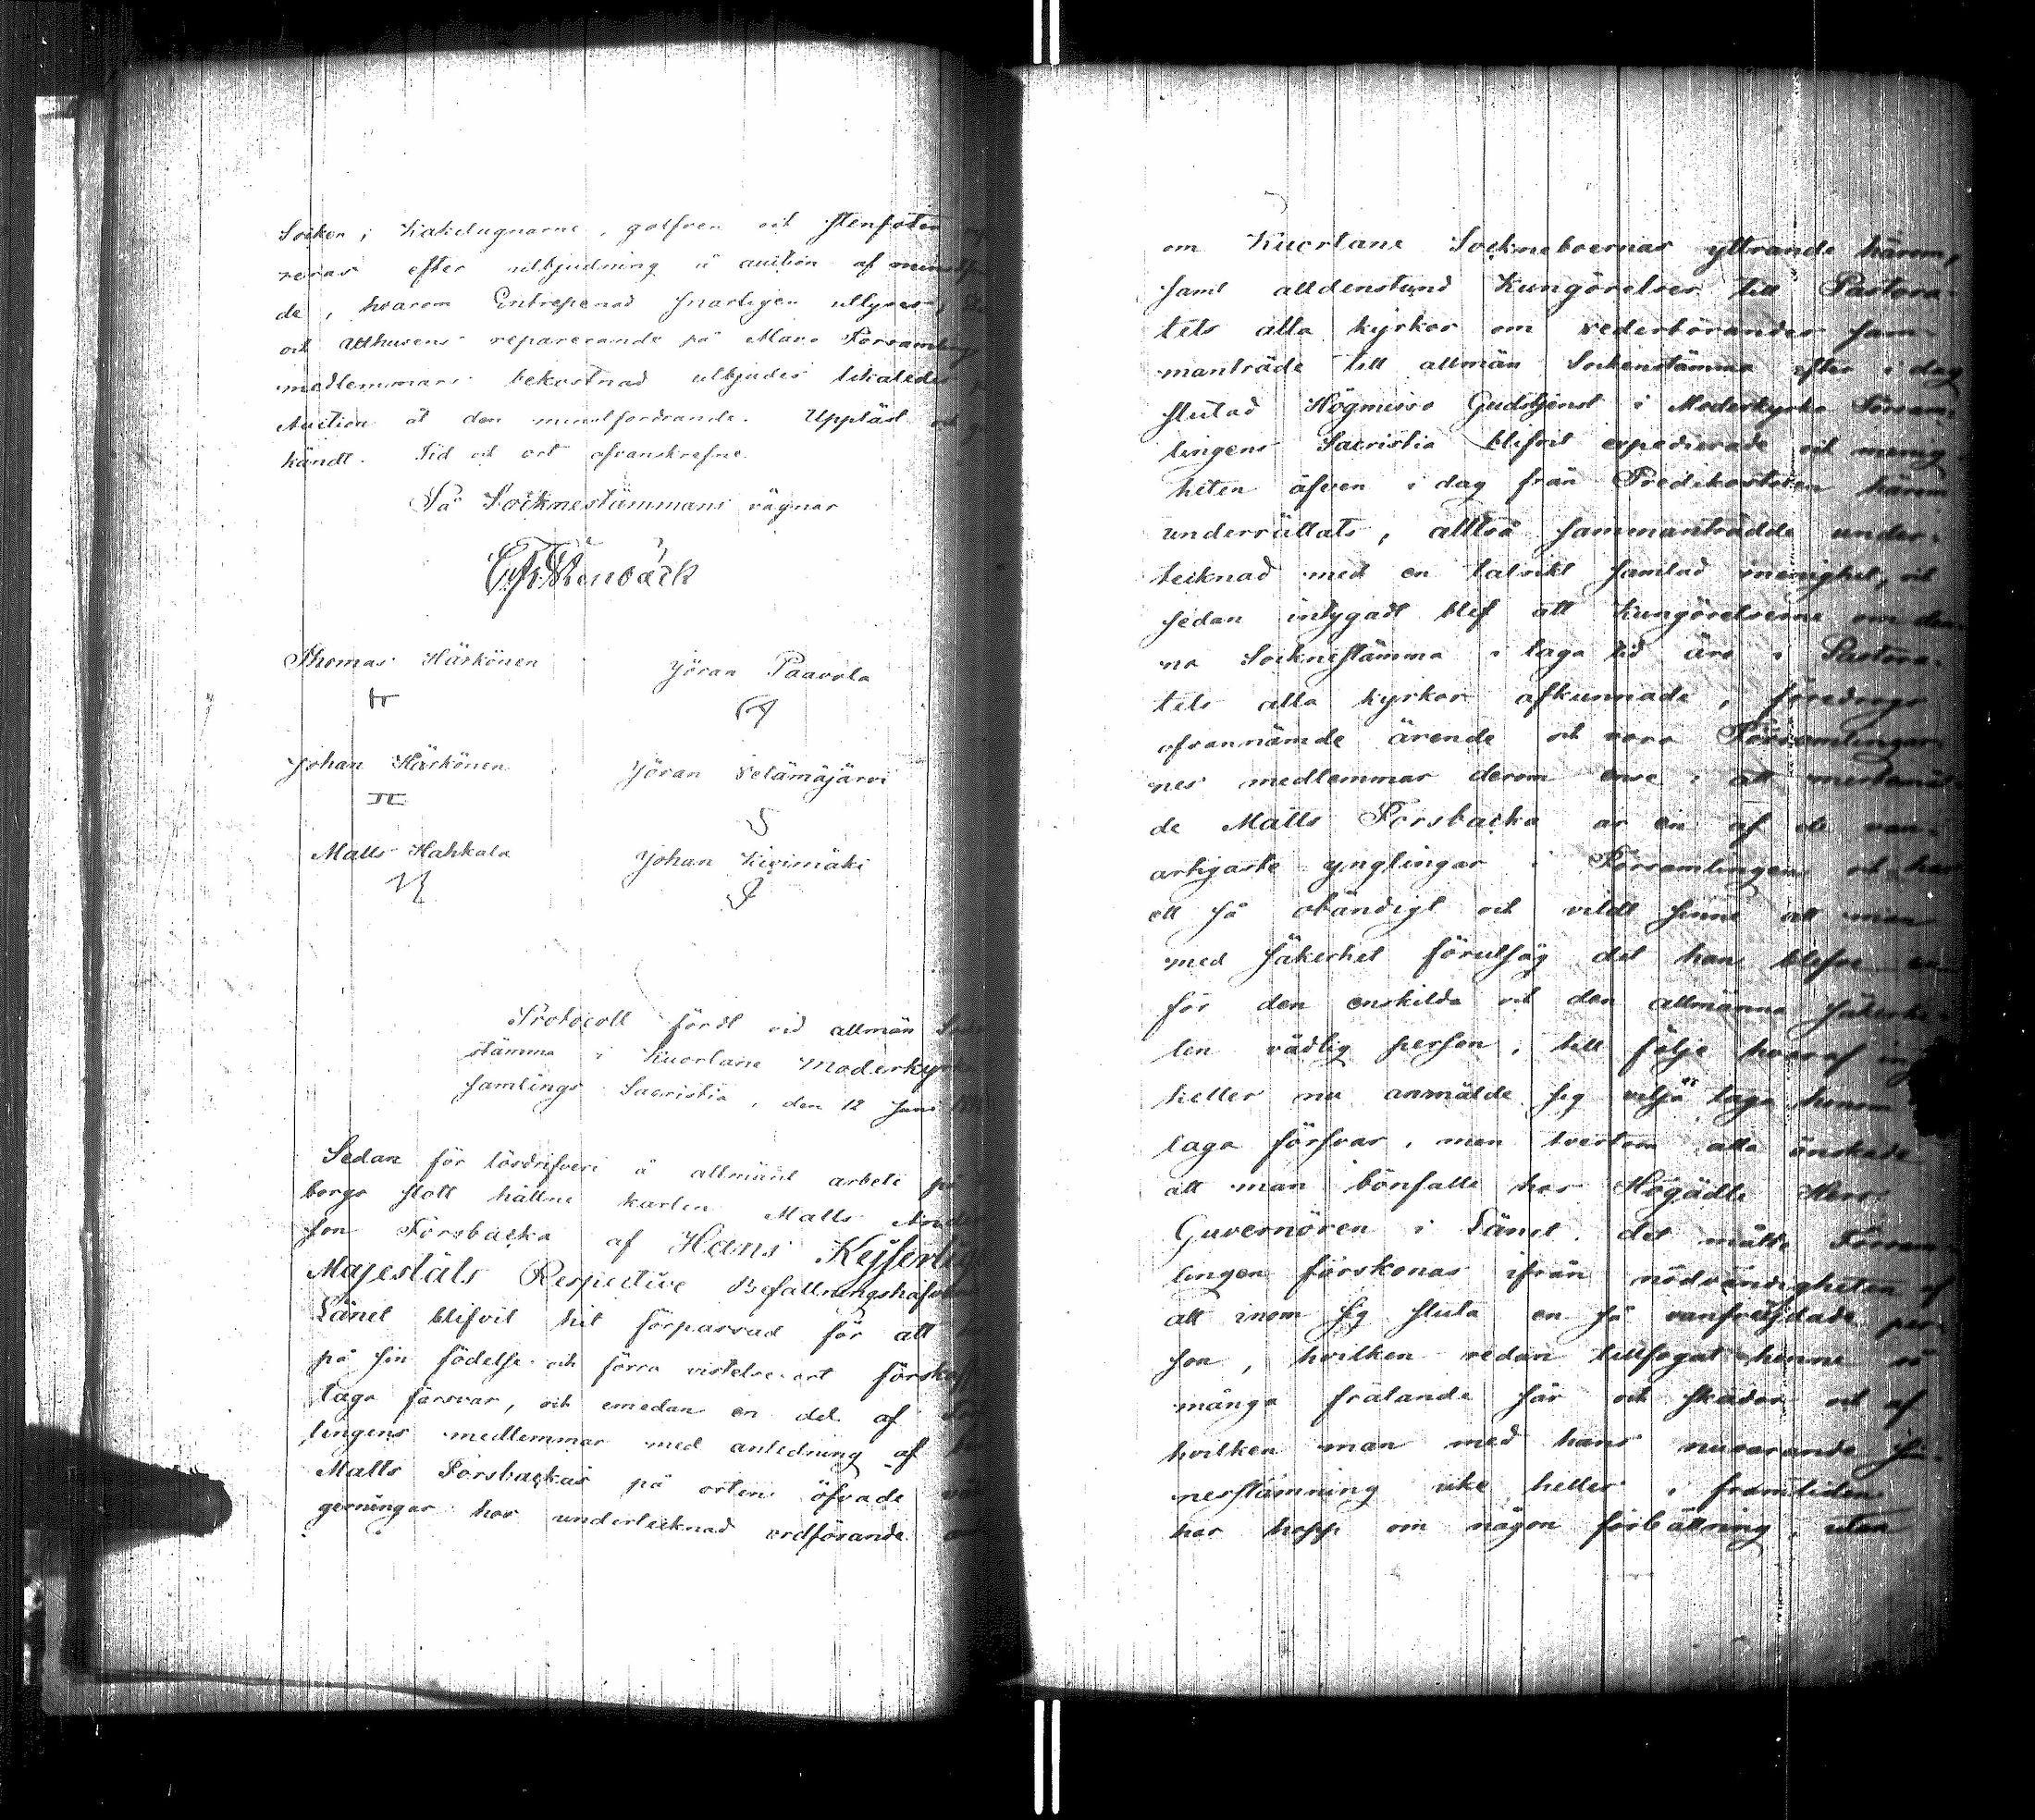 Socken; Kakelugnarne, golfven och stenfoten
reras efter utbjudning å auction af minstfor
de, hvarom Entrepenad snarligen utlyses;
och Uthusens reparerande på Mavo Församlings
medlemmars bekostnad utbjudes likaledes
Auction åt den minstfordrande. Uppläst och
kändt. Tid och ort ofvanskrefne.
På Socknestämmans vägnar
Thomas Härkönen Jöran Paavola
Johan Härkönen Jöran Vetämäjärvi
Matts Hahkala Johan Kivimäki
Protocoll fördt vid allmän Sock
stämma i Kuortane Moderkyrko
samlings Sacristia, den 12 Juni
Sedan för lösdrifveri å allmänt arbete på
borgs slott hållne karlen Matts Anders
son Forsbacka af Hans Kejserliga
Majestäts Respective Befallningshafvande
Länet blifvit hit förpassad för att
på sin födelse och förra vistelse-ort förskaffa
laga försvar, och emedan en del af För
lingens medlemmar med anledning af
Matts Forsbackas på orten öfvade
gerningar hos undertecknad ordförande
om Kuortane Socknéboernas yttrande härom,
samt alldenstund Kungörelser till Pastora-
tets alla kyrkor om vederbörandes sam-
manträde till allmän Sockenstämma efter i dag
slutad Högmesso Gudstjenst i Moderkyrko Försam-
lingens Sacristia blifvit expedierade och menig-
heten äfven i dag från Predikostolen härom
underrättats, alltså sammanträdde under-
tecknad med en talrikt samlad menighet, och
sedan intygadt blef att Kungörelserne om den-
na Socknestämma i laga tid äro i Pastora-
tets alla kyrkor afkunnade, föredrogs
ofvannämde ärende och voro Församlingar-
nes medlemmar derom ense: att mertamäl-
de Matts Forsbacka är en af de van-
artigaste ynglingar i Församlingen och har
ett så obändigt och vildt sinne att man
med säkerhet förutsåg det han blefve en
för den enskilda och den allmänna säkerhe-
ten vådlig person, till följe hvaraf ing
heller nu anmälde sig vilja taga honom i
laga försvar, men tvertom alla önskade
att man bönfalle hos Högädle Herr
Guvernören i Länet, det måtte Försam-
lingen förskonas ifrån nödvändigheten af
att inom sig sluta en så vanfrejdade per-
son, hvilken redan tillfogat henne så
många frätande sår och skador och af
hvilken man med hans nuvarande sin-
nesstämning icke heller i framtiden
har hopp om någon förbättring, utan